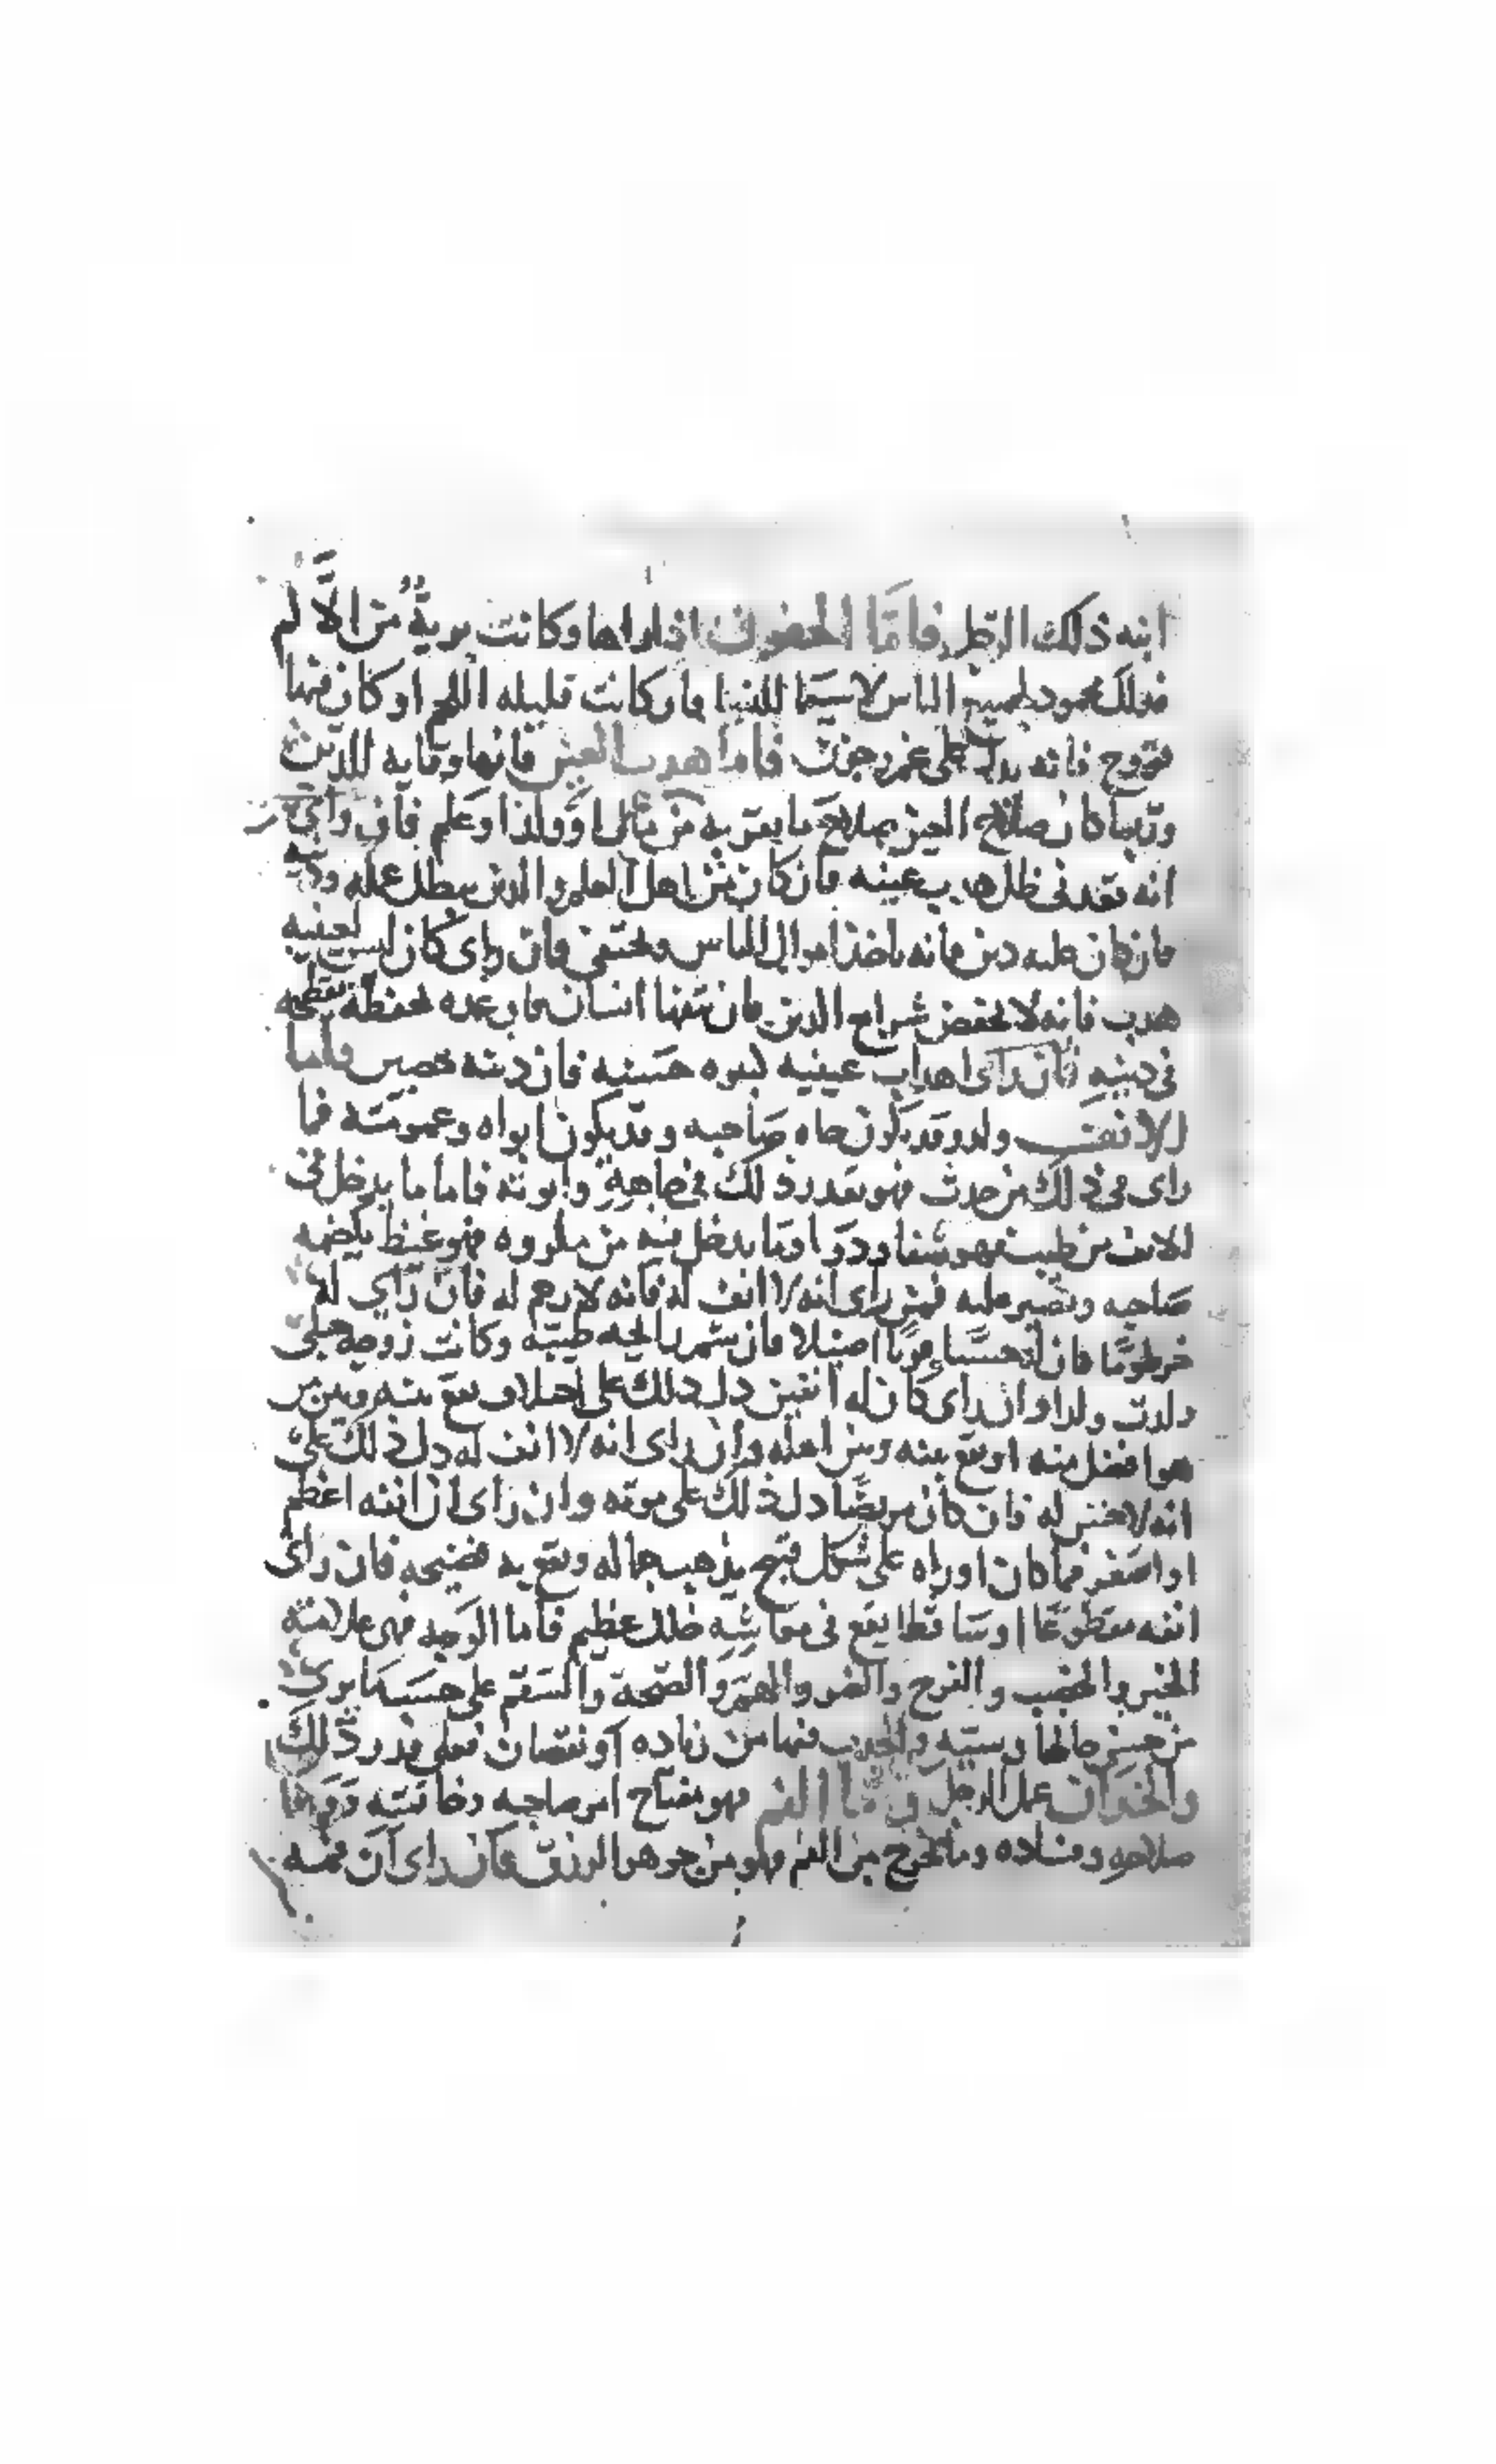 ابنه ذلك الرجل فامّا الجفون اذا راها وكانت برية من الالم
فذلك محمود لجميع الناس لاسيما للنسا وان كانت قليله اللحم او كان فيها
قروح فانه يدل على غم وحزن فاما هدب العين فانها وقايه للدين
وربما كان صلاح العين صلاح ما يقر به من مال او ولد او علم فان راى
انه تعد فى ظل هدب عينيه فان كان من اهل العلم والدين
فان كان عليه دين فانه ياخذ اموال الناس ويختفى فان راى كان ليس لعينيه
هدب فانه لا يحفظ شرايع الدين فان نتفها انسان فان عدوه
فى دينه فان راى اهداب عينيه كثيره حسنه فان دينه حصين واما
الانف ولد وقد يكون جاه صاحبه وقد يكون ابواه وعمومته فما
راى فى ذلك من حدث فهو بقدر ذلك فى جاهه وابوته فاما ما يدخل فى
الانف من طيب فهو شفا ودوا وما يدخل فيه من مكروه فهو غيظ يكظمه
صاحبه ويصبر عليه فمن راى انه لا انف له فانه لا رحم له فان راى له
خرطوما فان له حسبا قويا اصيلا فان شم رايحه طيبه وكانت زوجته حبلى
ولدت ولدا وان راى كان له انفين دل ذلك على اختلاف يقع بينه وبين من
هو افضل منه او يقع بينه وبين اهله وان راى انه لا انف له دل ذلك على
انه لا خير له فان كان مريضا دل ذلك على موته وان راى ان انفه اعظم
او اصغر مما كان او راه على شكل قبيح يذهب جماله ويقع به فضيحه فان راى
انفه مقطوعا او ساقطا يقع فى معاشه خلل عظيم فاما الوجه فهى علامته
الخير والخصب والفرح والضر والهم والصحة والسقم على حسب ما يرى
من حسن حالها وسيه والجدب فيها من زياده او نقصان فعلى قدر ذلك
والخدان عمل الرجل فاما الفم فهو مفتاح امر صاحبه وخاتمته
صلاحه وفساده وما يخرج من الفم فهو من جوهر الرزق فان راى ان فمه